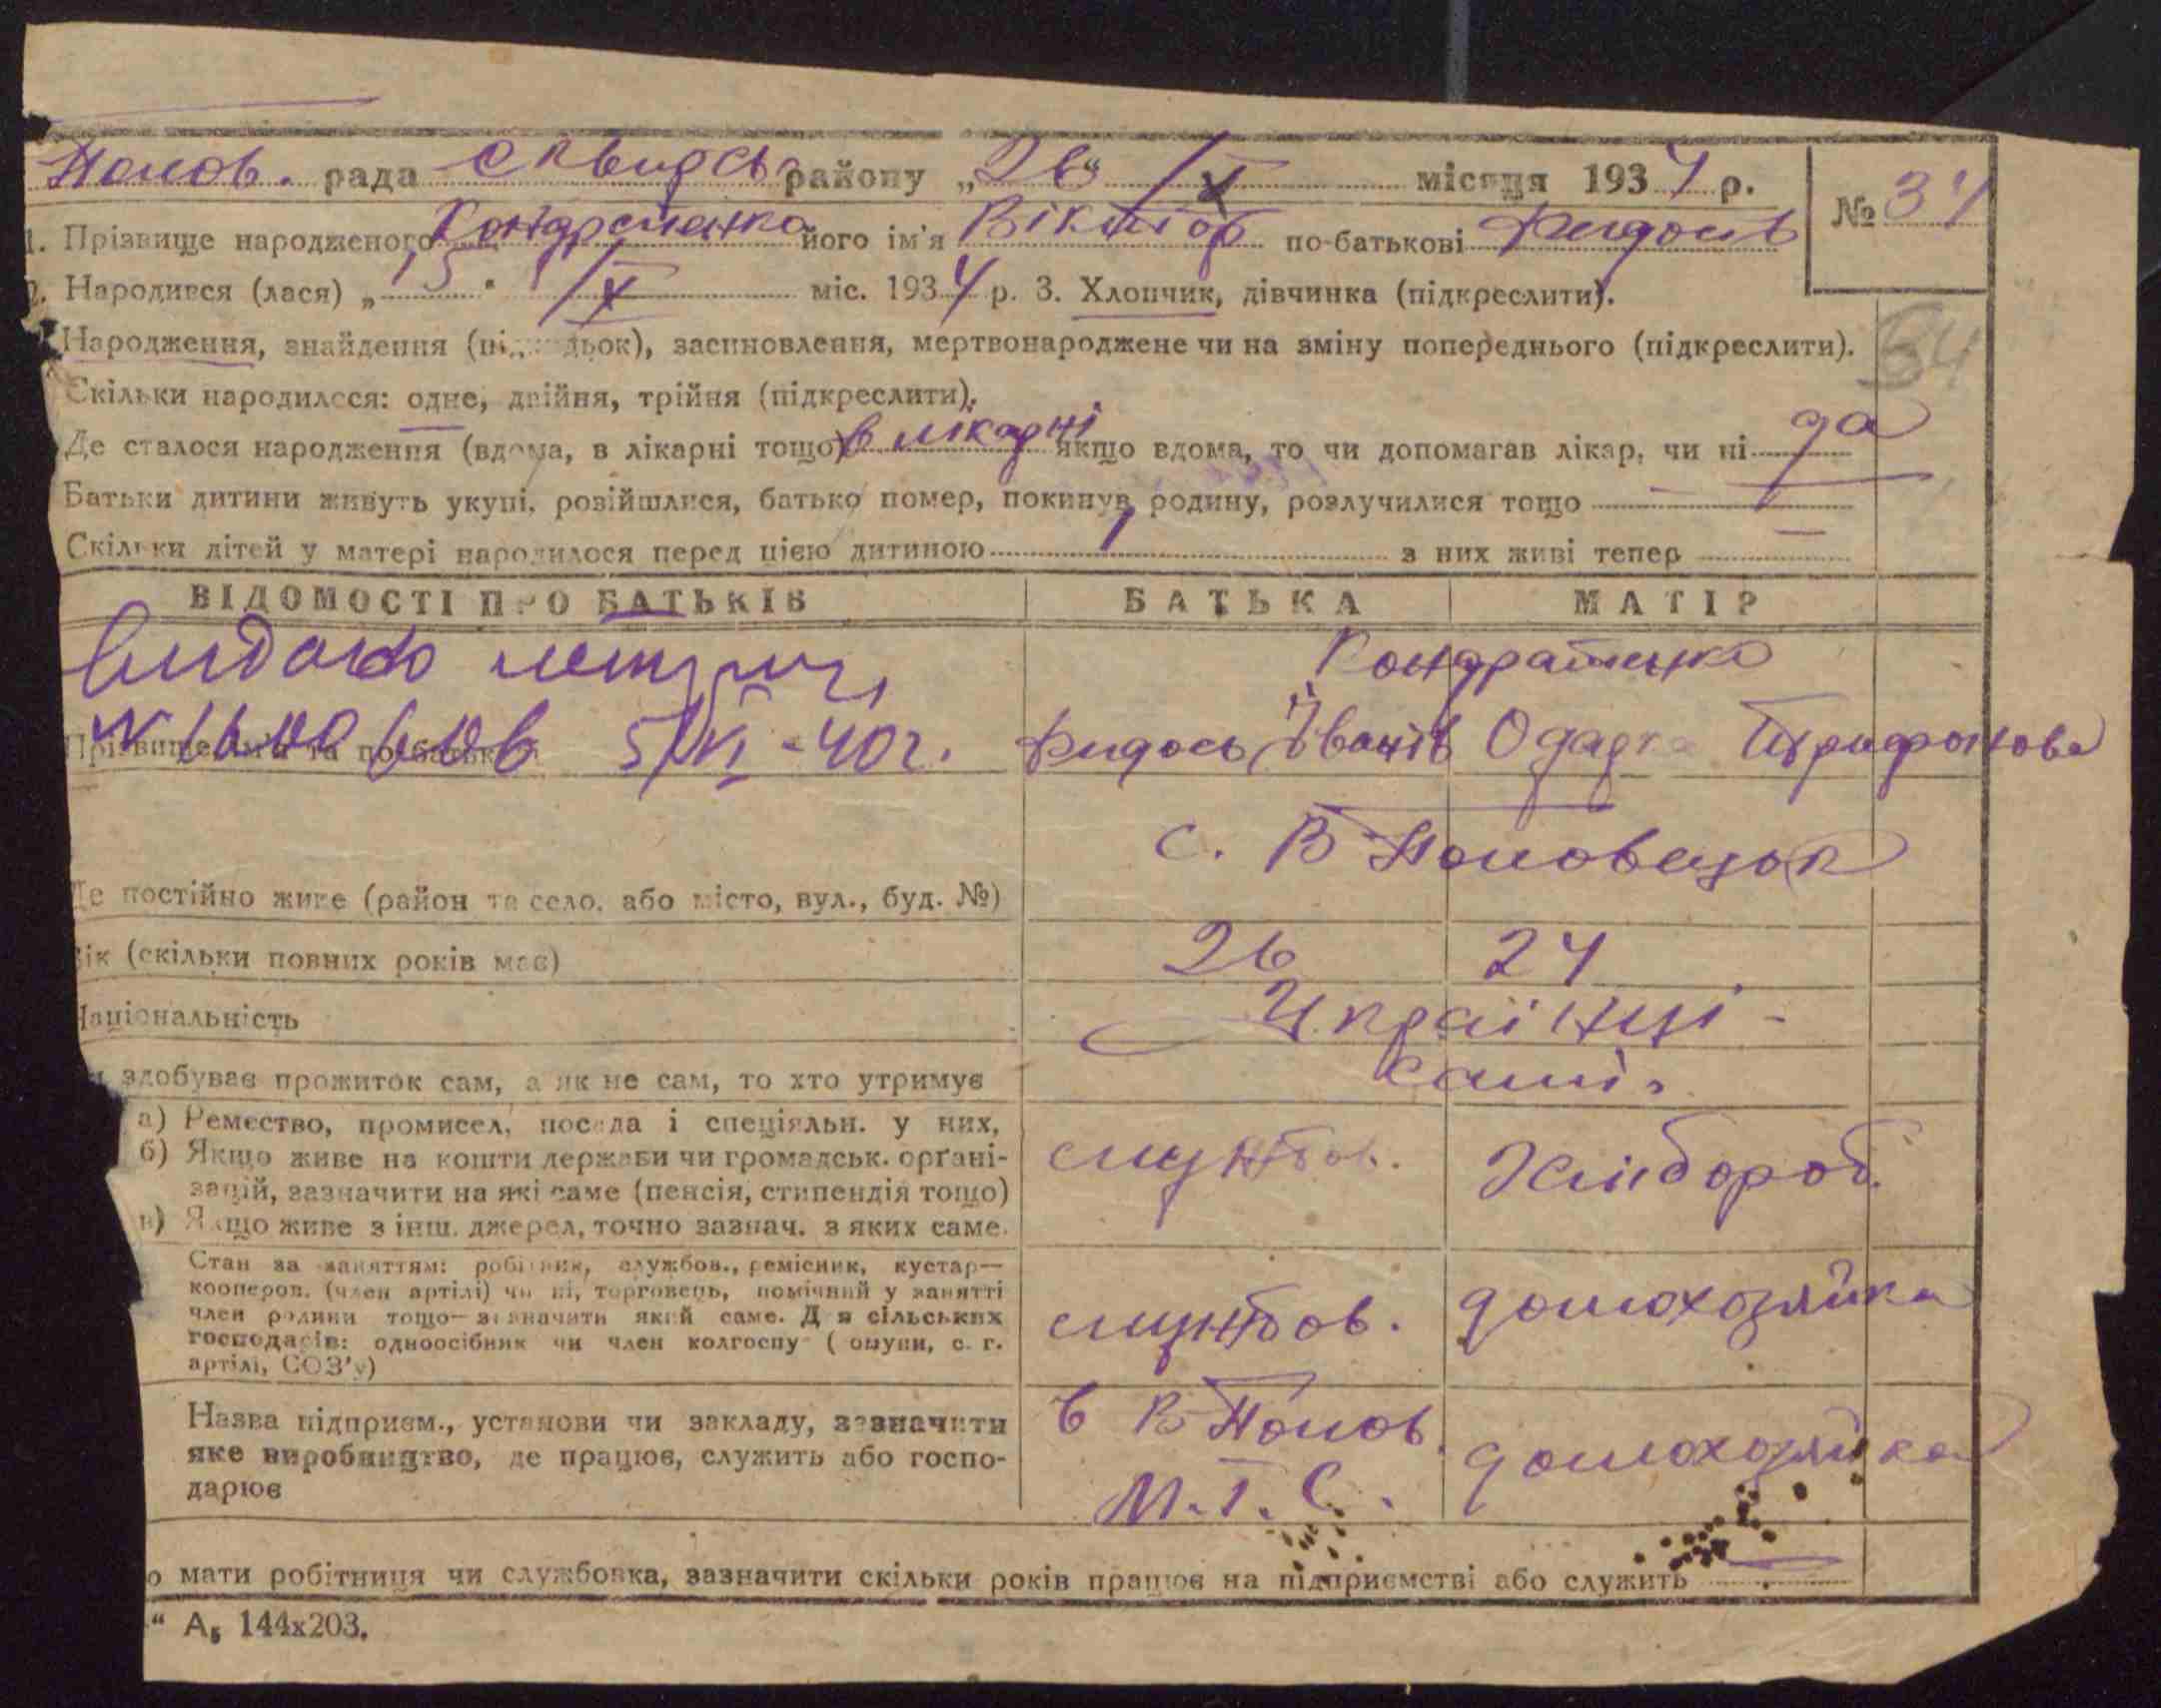 Полов. рада Сквирсь району „26“ IX місяця 1934 р. № 34
1. Прізвище народженого Кондратенко його ім'я Віктор по-батькові Федосів
2. Народився (лася) „15“ IX міс. 1934 р. 3. Хлопчик, дівчинка (підкреслити).
Народження, знайдення (підкидьок), засиновлення, мертвонароджене чи на зміну попереднього (підкреслити).
34
Скільки народилося: одне, двійня, трійня (підкреслити).
Де сталося народження (вдома, в лікарні тощо) в лікарні якщо вдома, то чи допомагав лікар, чи ні да
Батьки дитини живуть укупі, розійшлися, батько помер, покинув родину, розлучилися тощо —
Скільки дітей у матері народилося перед цією дитиною 1 з них живі тепер —
ВІДОМОСТІ ПРО БАТЬКІВ БАТЬКА МАТІР
Видано метрику Кондратенко
5/VI-40 г.
Прізвище, ім'я та по-батькові Федось Іванів Одарка Трифонова
с. В Половецьк
Де постійно живе (район та село, або місто, вул., буд. №)
Вік (скільки повних років має) 26 24
Національність Українці
здобуває прожиток сам, а як не сам, то хто утримує самі
а) Ремество, промисел, посада і спеціяльн. у них,
б) Якщо живе на кошти держави чи громадськ. орґані-
зацій, зазначити на які саме (пенсія, стипендія тощо) службов. Хлібороб.
в) Якщо живе з інш. джерел, точно зазнач. з яких саме.
Стан за заняттям: робітник, службов., ремісник, кустар—
кооперов. (член артілі) чи ні, торговець, помічний у занятті
член родини тощо—зазначити який саме. Для сільських
господарів: одноосібник чи член колгоспу (комуни, с. г.
артілі, СОЗ'у) службов. домохозяйка
Назва підприєм., установи чи закладу, зазначити
яке виробництво, де працює, служить або госпо-
дарює в В Полов. М.Т.С. домохозяйка
о мати робітниця чи службовка, зазначити скільки років працює на підприємстві або служить —
“ А₅ 144x203.